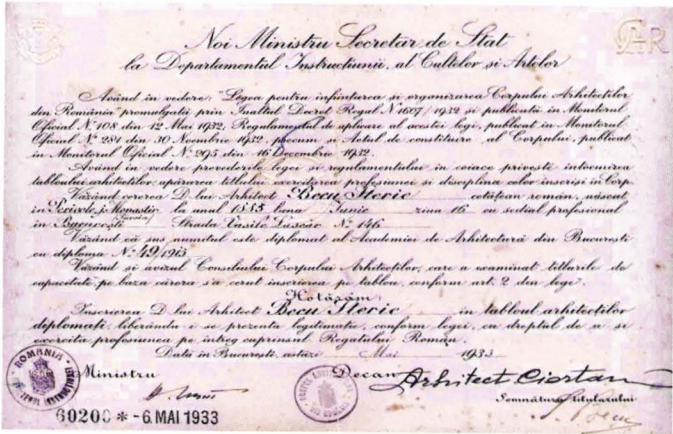 Noi Ministru Secretar de Stat
la Departamentul Instrucțiunii, al Cultelor și Artelor
Având în vedere: "Legea pentru înființarea și organizarea Corpului Arhitecților
din România" promulgată prin Înaltul Decret Regal Nº 1607/1932 și publicată în Monitorul
Oficial Nº 108 din 12 Mai 1932, Regulamentul de aplicare al acestei legi, publicat în Monitorul
Oficial Nº 281 din 30 Noembrie 1932 precum și Actul de constituire al Corpului, publicat
în Monitorul Oficial Nº 295 din 16 Decembrie 1932.
Având în vedere prevederile legei și regulamentului în ceiace privește întocmirea
tabloului arhitecților, apărarea titlului, exercitarea profesiunei și disciplina celor înscriși în Corp.
Văzând cererea D-lui Arhitect Becu Sterie cetățean român, născut
în j. Monastir la anul 1885 luna Junie ziua 16 cu sediul profesional
în București Strada Vasile Lascăr Nº 146
Văzând că sus numitul este diplomat al Academiei de Arhitectură din București
cu diploma Nº 49/1915
Văzând și avizul Consiliului Corpului Arhitecților, care a examinat titlurile de
capacitate pe baza cărora s'a cerut înscrierea pe tablou, conform art. 2 din lege.
Hotărăm:
Înscrierea D-lui Arhitect Becu Sterie în tabloul arhitecților
diplomați, liberându-i-se prezenta legitimație, conform legei, cu dreptul de a-și
exercita profesiunea pe întreg cuprinsul Regatului Român.
Dată în București, astăzi Mai 1933
ROMANIA
Ministru
Decan
Arhitect Ciortan
Semnătura titularului
60200 * -6. MAI 1933